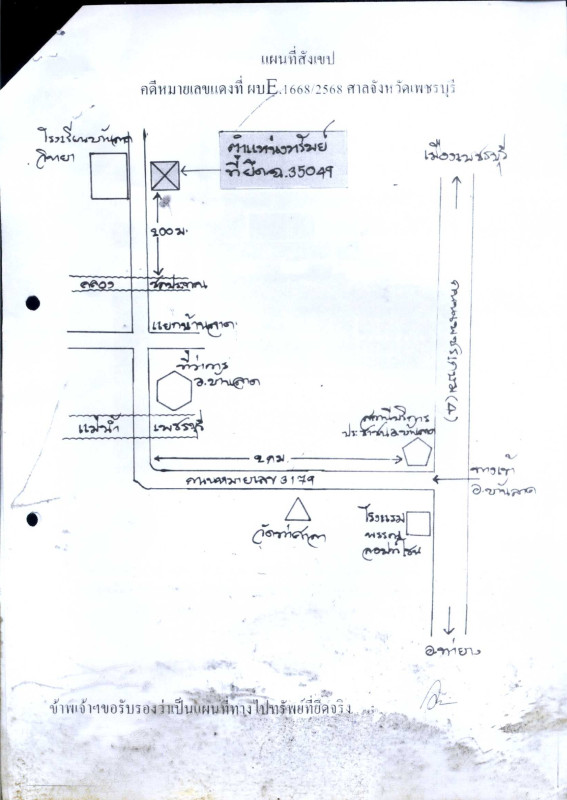 แผนที่สังเขป
คดีหมายเลขแดงที่ ผบE.1668/2568 ศาลจังหวัดเพชรบุรี
โรงเรียนบ้านลาด
วิทยา
ตำแหน่งทรัพย์
ที่ยึดฉ.35049
เมืองเพชรบุรี
200 ม.
คลอง ชลประทาน
แยกบ้านลาด
ที่ว่าการ
อ.บ้านลาด
ถนนเพชรเกษม (4)
แม่น้ำ เพชรบุรี
สถานีบริการ
ประชาชน อ.บ้านลาด
2 กม.
ถนนหมายเลข 3179
ทางเข้า
อ.บ้านลาด
วัดท่าศาลา
โรงแรม
อ.ท่ายาง
ข้าพเจ้าฯขอรับรองว่าเป็นแผนที่ทางไปทรัพย์ที่ยึดจริง